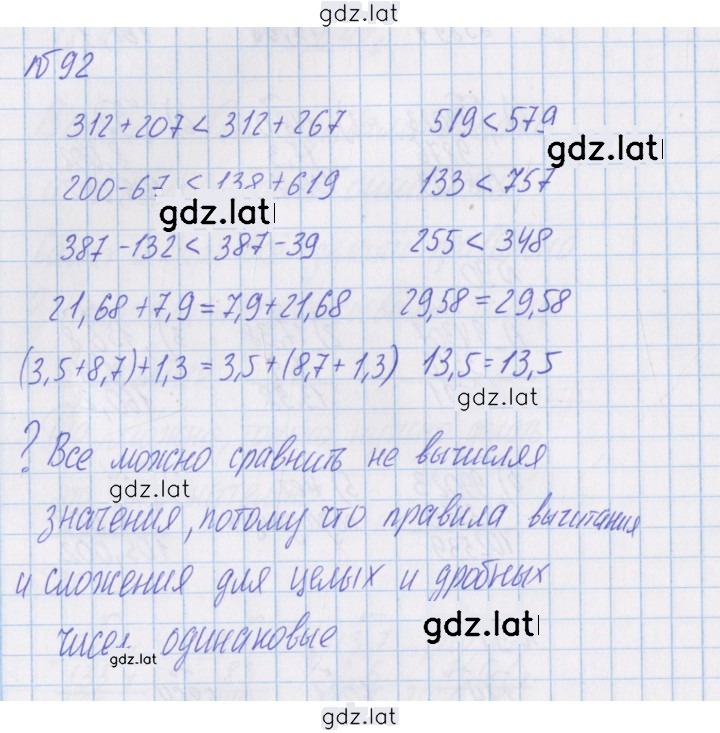 gdz.lat
№92
312+207 < 312+267 519 < 579
gdz.lat
200-67 < 138+619 133 < 757
gdz.lat
387-132 < 387-39 255 < 348
21,68+7,9=7,9+21,68 29,58=29,58
(3,5+8,7)+1,3=3,5+(8,7+1,3) 13,5=13,5
gdz.lat
? Все можно сравнить не вычисляя
gdz.lat
значения, потому что правила вычитания
и сложения для целых и дробных
чисел одинаковые
gdz.lat
gdz.lat
gdz.lat